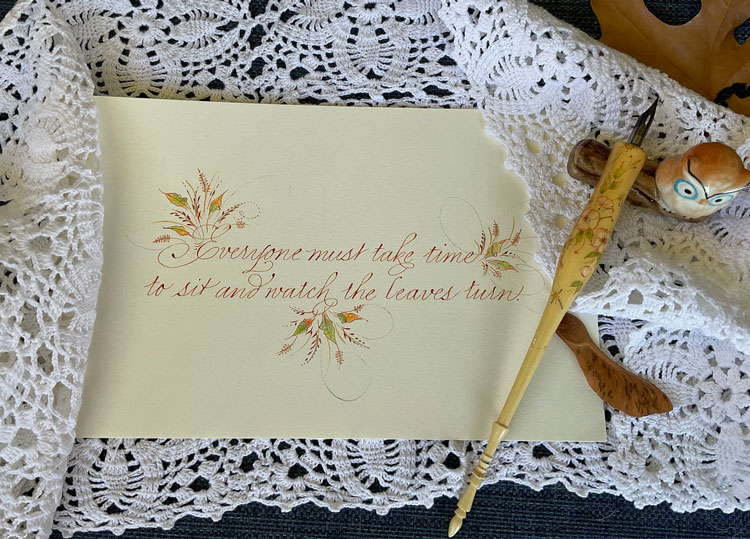 Everyone must take time
to sit and watch the leaves turn.